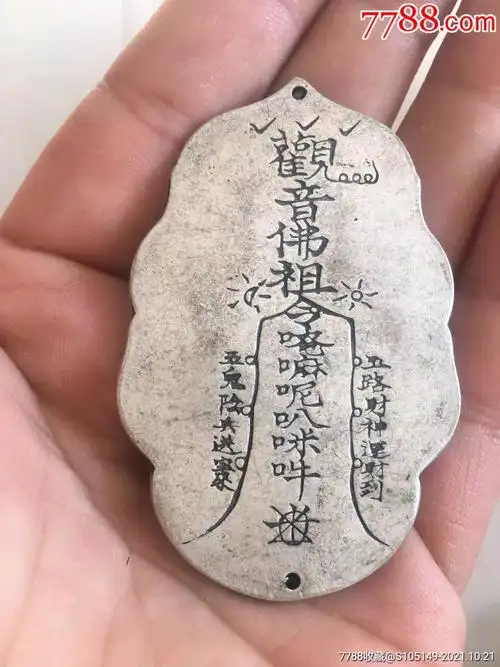 7788.com
觀音佛祖令唵嘛呢叭咪吽
五路財神運財到
五鬼陰兵進寶
7788收藏@S105149-2021.10.21